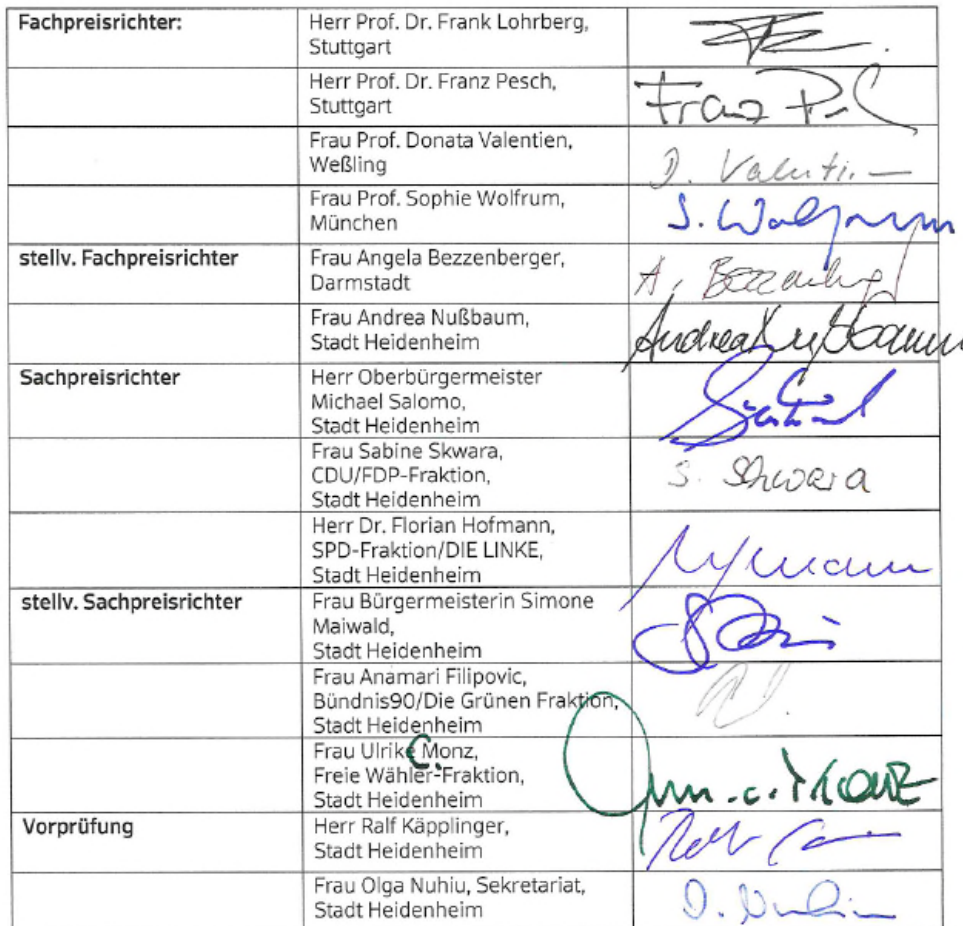 Fachpreisrichter:
Herr Prof. Dr. Frank Lohrberg,
Stuttgart
Herr Prof. Dr. Franz Pesch,
Stuttgart
Franz
Frau Prof. Donata Valentien,
Weßling
D. Valentien
Frau Prof. Sophie Wolfrum,
München
S. Wolfrum
stellv. Fachpreisrichter
Frau Angela Bezzenberger,
Darmstadt
A. Bezzenberger
Frau Andrea Nußbaum,
Stadt Heidenheim
Andrea Nußbaum
Sachpreisrichter
Herr Oberbürgermeister
Michael Salomo,
Stadt Heidenheim
Frau Sabine Skwara,
CDU/FDP-Fraktion,
Stadt Heidenheim
S. Skwara
Herr Dr. Florian Hofmann,
SPD-Fraktion/DIE LINKE,
Stadt Heidenheim
stellv. Sachpreisrichter
Frau Bürgermeisterin Simone
Maiwald,
Stadt Heidenheim
Frau Anamari Filipovic,
Bündnis90/Die Grünen Fraktion,
Stadt Heidenheim
Frau Ulrike C. Monz,
Freie Wähler-Fraktion,
Stadt Heidenheim
Vorprüfung
Herr Ralf Käpplinger,
Stadt Heidenheim
Frau Olga Nuhiu, Sekretariat,
Stadt Heidenheim
O. Nuhiu